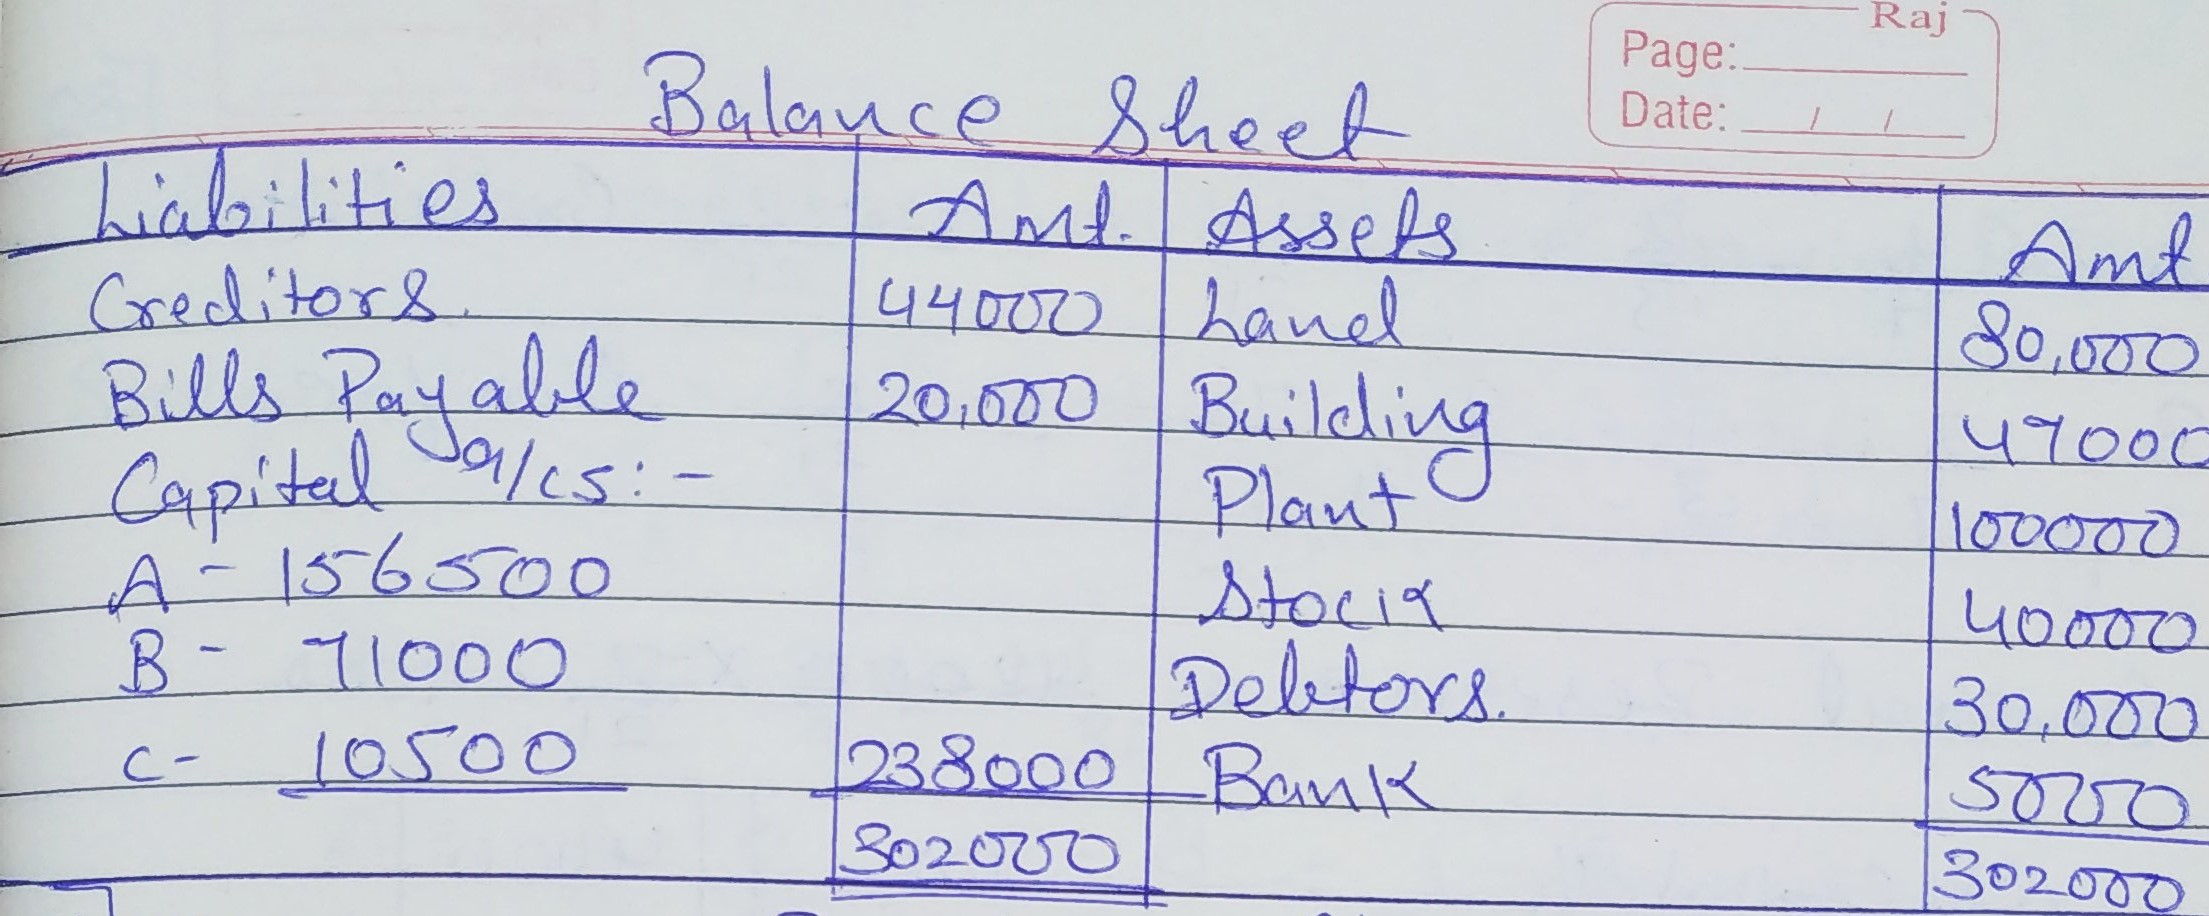 Raj
Page:
Date: / /
Balance Sheet
Liabilities Amt. Assets Amt
Creditors. 44000 Land 80,000
Bills Payable 20,000 Building 47000
Capital a/cs:- Plant 100000
A - 156500 Stock 40000
B - 71000 Debtors. 30,000
C- 10500 238000 Bank 5000
302000 302000